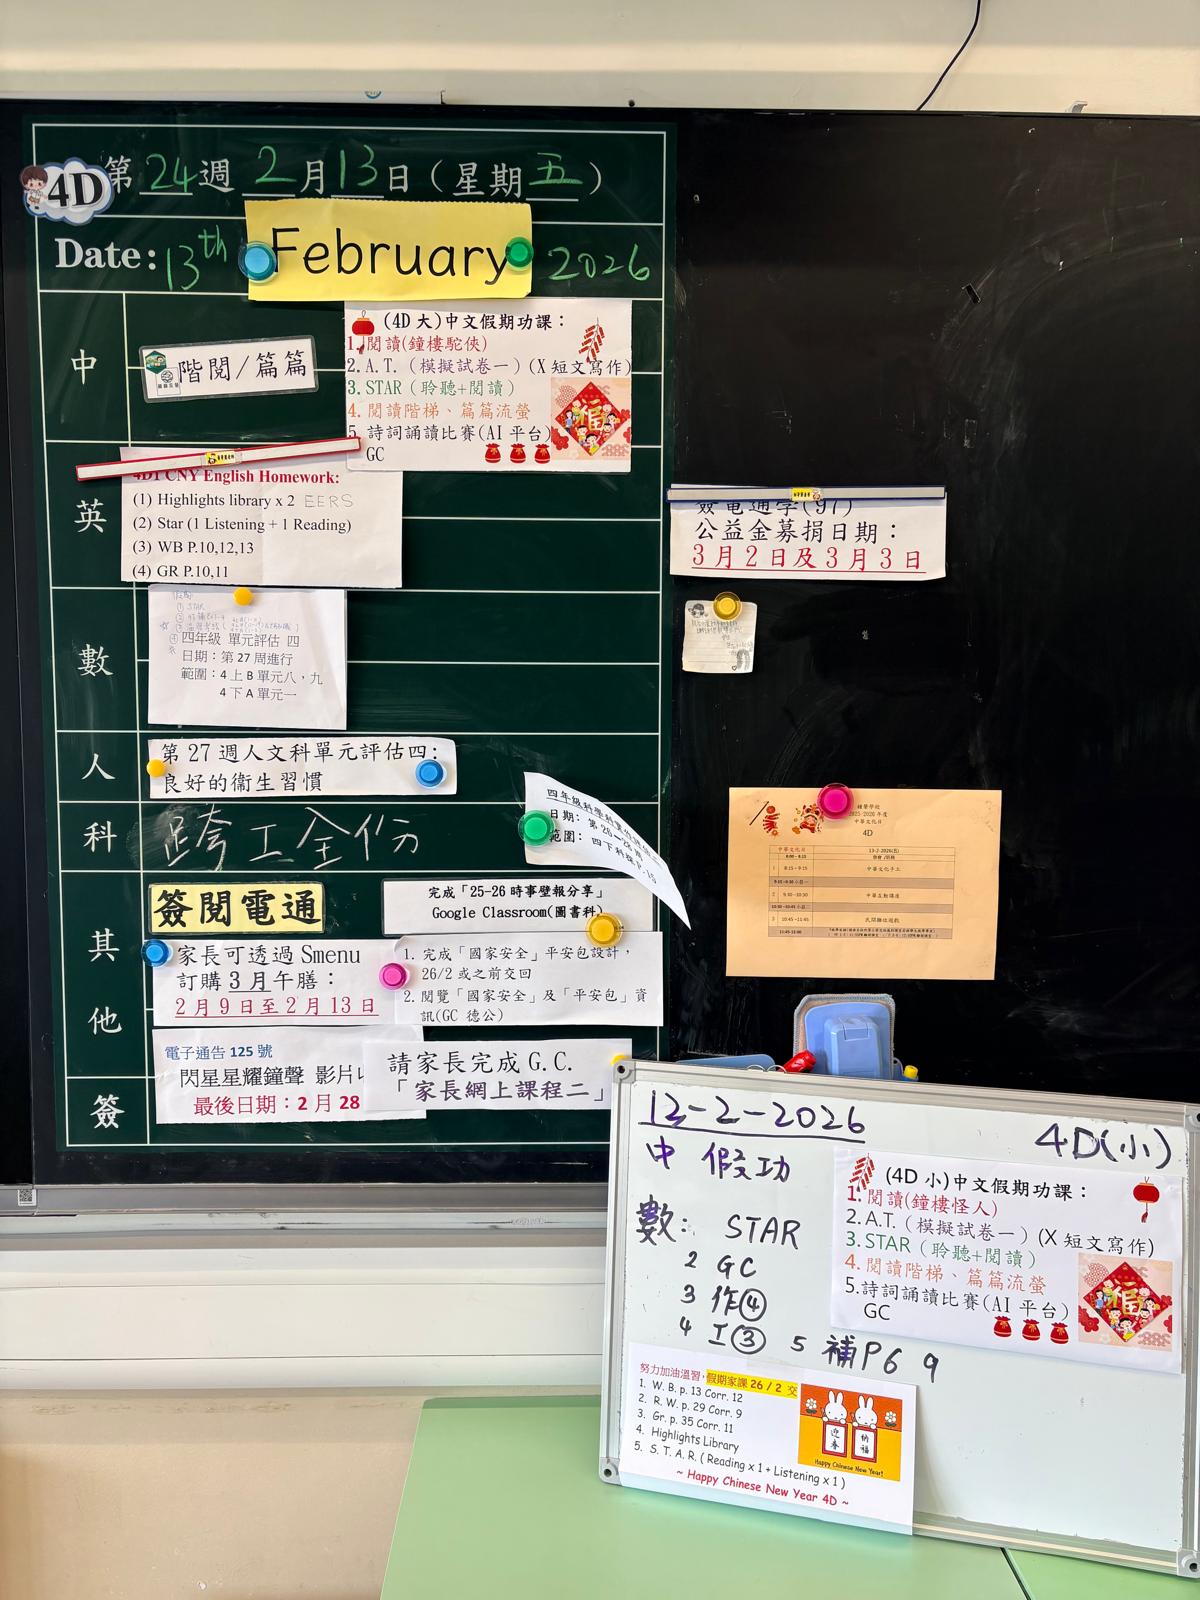 4D
第 24 週 2 月 13 日 (星期 五)
Date: 13th February 2026
中
階閱/篇篇
(4D 大)中文假期功課:
1. 閱讀(鐘樓駝俠)
2. A.T. (模擬試卷一) (X 短文寫作)
3. STAR (聆聽+閱讀)
4. 閱讀階梯、篇篇流螢
5. 詩詞誦讀比賽(AI 平台)
GC
福
英
4D1 CNY English Homework:
(1) Highlights library x 2 EERS
(2) Star (1 Listening + 1 Reading)
(3) WB P.10,12,13
(4) GR P.10,11
數
① STAR
四年級 單元評估 四
日期:第 27 周進行
範圍:4 上 B 單元八,九
4 下 A 單元一
人
第 27 週人文科單元評估四:
良好的衞生習慣
科
跨工全份
四年級科學科
日期: 第 26
範圍: 四下科
其他
簽閱電通
完成「25-26 時事壁報分享」
Google Classroom(圖書科)
家長可透過 Smenu
訂購 3 月午膳:
2 月 9 日至 2 月 13 日
1. 完成「國家安全」平安包設計,
26/2 或之前交回
2. 閱覽「國家安全」及「平安包」資
訊(GC 德公)
簽
電子通告 125 號
閃星星耀鐘聲 影片
最後日期:2 月 28
請家長完成 G.C.
「家長網上課程二」
簽電通字(97)
公益金募捐日期:
3 月 2 日及 3 月 3 日
2025-2026 年度
中華文化日
4D
中華文化日 13-2-2026(五)
8:15-9:15
9:30-10:30 中華互動講座
10:45-11:45 民間攤位遊戲
12-2-2026
4D(小)
中 假功
數: STAR
2 GC
3 作④
4 工③ 5 補P6 9
(4D 小)中文假期功課:
1. 閱讀(鐘樓怪人)
2. A.T. (模擬試卷一) (X 短文寫作)
3. STAR (聆聽+閱讀)
4. 閱讀階梯、篇篇流螢
5. 詩詞誦讀比賽(AI 平台)
GC
福
努力加油溫習,假期家課 26 / 2 交
1. W. B. p. 13 Corr. 12
2. R. W. p. 29 Corr. 9
3. Gr. p. 35 Corr. 11
4. Highlights Library
5. S. T. A. R. ( Reading x 1 + Listening x 1 )
~ Happy Chinese New Year 4D ~
迎春
納福
Happy Chinese New Year!